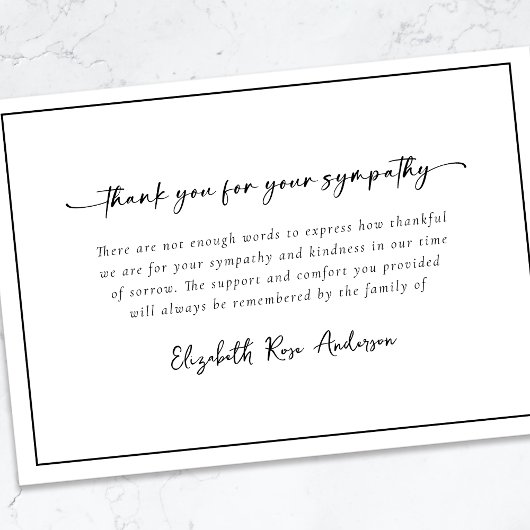 thank you for your sympathy
There are not enough words to express how thankful
we are for your sympathy and kindness in our time
of sorrow. The support and comfort you provided
will always be remembered by the family of
Elizabeth Rose Anderson